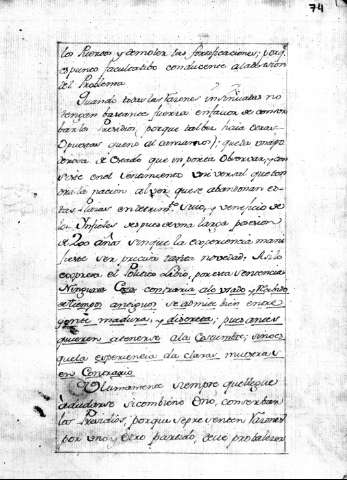 74
los Puertos y demoler las fortificaciones; por q.e
es punto facultatibo conducente a la decision
del Problema.
Quando todas las razones insinuadas no
tengan bastante fuerza en favor de conser-
bar los Presidios, porque talbez haia otras
opuestas que no al canzamos); queda una po-
derosa de Estado que importa observar, y con-
siste en el sentimiento universal que ten-
dra la nacion al ver que se abandonan es-
tas Plazas en detrim.to suio, y veneficio de
los Infieles despues de una larga posesion
de 200 años sin que la experiencia mani-
fieste ser precisa tanta novedad. Asi lo
expresa el Politico Sabio, por esta sentencia
Ninguna Cosa contraria a lo usado, y recibido
de tiempo antiguo, se admite bien entre
gente madura, y discreta; pues antes
quieren atenerse a la Costumbre; sino es
que la experiencia da claras muestras
en Contrario.
Ultimamente siempre que llegue
a dudarse si combiene ò no, conserbar
los Presidios, porque se presenten razones
por uno, y otro partido,